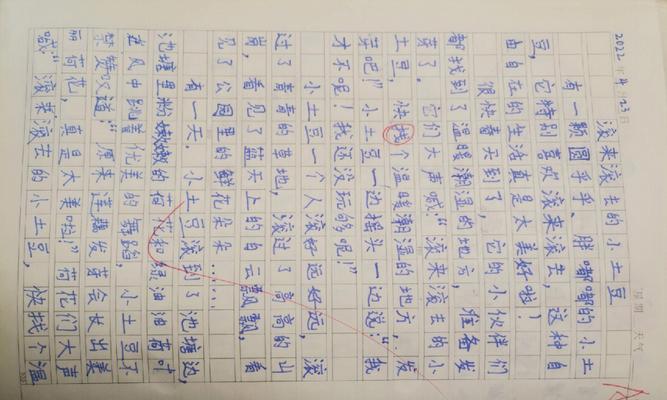 2022
23日
星期 天气
滚来滚去的小土豆
有一颗圆乎乎、胖嘟嘟的小土
豆，它特别喜欢滚来滚去，这种自
由自在的生活真是太美好啦！
很快春天到了，它的小伙伴们
都找到了温暖潮湿的地方，准备发
芽了。它们大声喊：“滚来滚去的小
土豆，快找个温暖潮湿的地方，发
芽吧！”小土豆一边摇头一边说：“我
才不呢！我还没玩够呢！”
小土豆一个人滚好远好远，滚
过了青青的草地，滚过了高高的山
岗，看见了蓝天上的白云飘飘，看
见了公园里的鲜花朵朵……
有一天，小土豆滚到了池塘边，
池塘里粉嫩嫩的荷花和绿油油荷叶
在风中跳着优美的舞蹈，小土豆不
禁赞叹道：“原来莲藕发芽会长出美
丽荷花，真是太美啦！”荷花们大声
喊：“滚来滚去的小土豆，快找个温